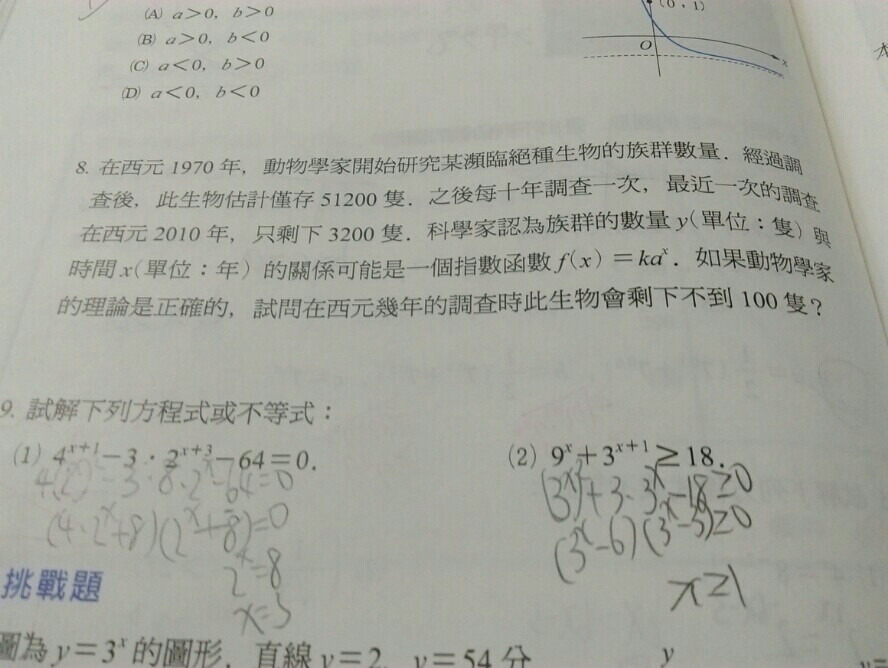 (A) a＞0，b＞0
(B) a＞0，b＜0
(C) a＜0，b＞0
(D) a＜0，b＜0
(0，1)
O
x
8. 在西元 1970 年，動物學家開始研究某瀕臨絕種生物的族群數量．經過調
查後，此生物估計僅存 51200 隻．之後每十年調查一次，最近一次的調查
在西元 2010 年，只剩下 3200 隻．科學家認為族群的數量 y（單位：隻）與
時間 x（單位：年）的關係可能是一個指數函數 f(x)＝kaˣ．如果動物學家
的理論是正確的，試問在西元幾年的調查時此生物會剩下不到 100 隻？
9. 試解下列方程式或不等式：
(1) 4ˣ⁺¹－3．2ˣ⁺³－64＝0．
(2) 9ˣ＋3ˣ⁺¹≥18．
(4·2ˣ+8)(2ˣ-8)=0
2ˣ=8
x=3
(3ˣ)²+3·3ˣ-18≥0
(3ˣ-6)(3ˣ-3)≥0
x≥1
挑戰題
圖為 y＝3ˣ 的圖形．直線 y＝2，y＝54 分
y